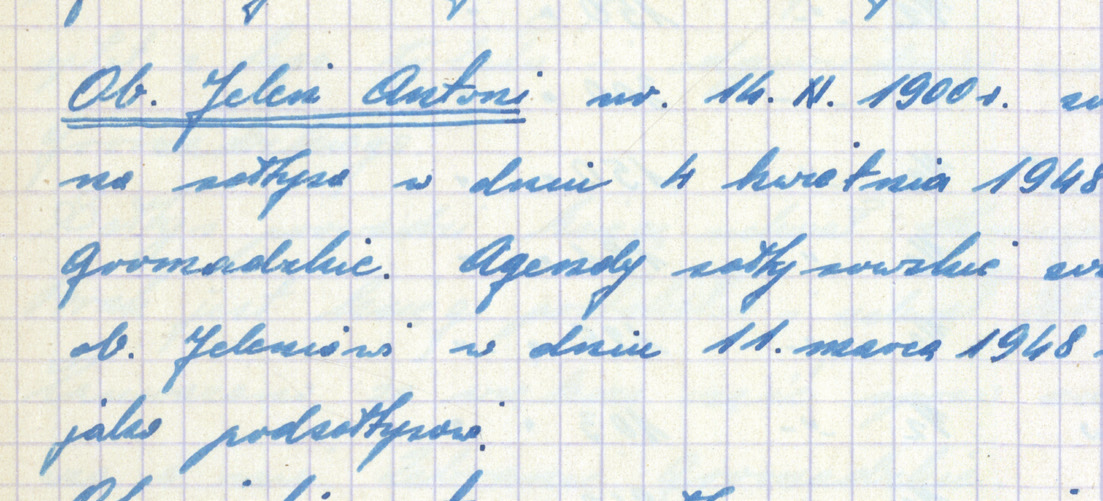 Ob. Jeleń Antoni ur. 14. II. 1900 r.
na sołtysa w dniu 4 kwietnia 1948
gromadzkie. Agendy sołtysowskie
ob. Jeleniowi w dniu 11. marca 1948
jako podsołtysowi.